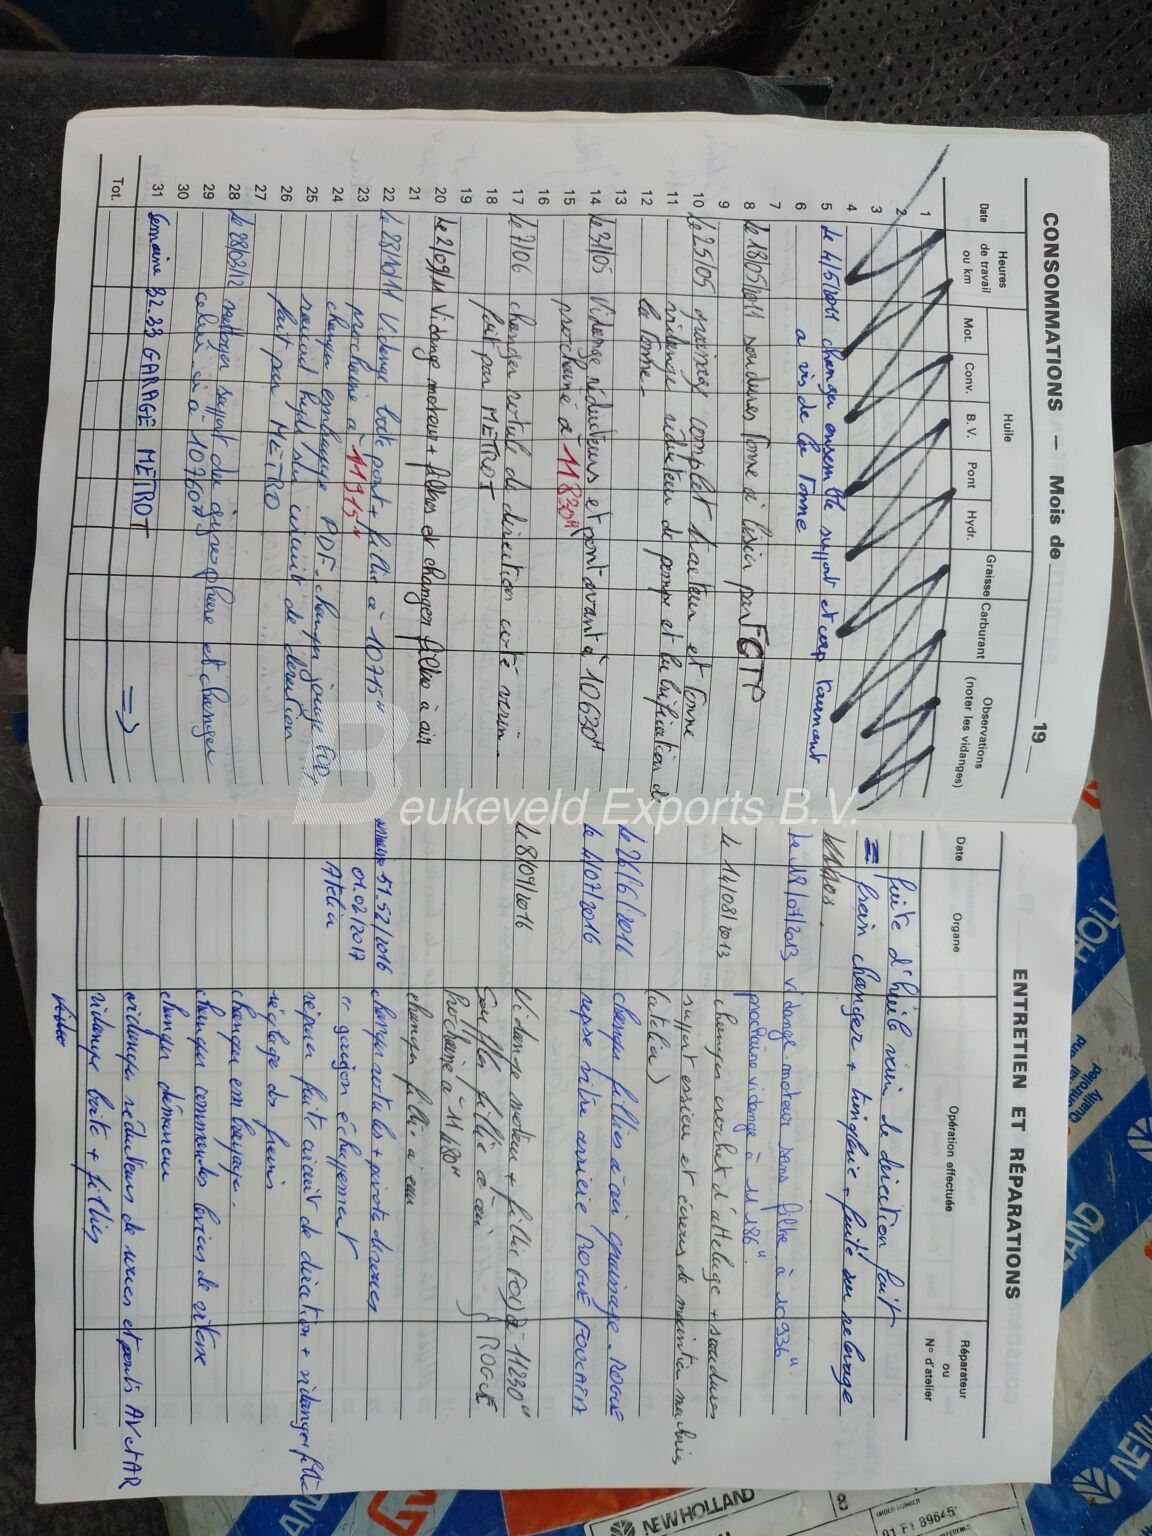 CONSOMMATIONS — Mois de 19
Date
Heures de travail ou km
Huile
Mot. Conv. B.V. Pont Hydr.
Graisse
Carburant
Observations (noter les vidanges)
1
2
3
4
5 le 4/5/2011 changer ensemble support et coup tournant
6 a vis de la Tonne
7
8 le 18/05/2011 soudures Tonne à lisier par FGTP
9
10 le 25/05 graissage complet tracteur et Tonne
11 vidange réducteur de pompe et lubrification de
12 la Tonne -
13
14 le 31/05 Vidange réducteurs et pont avant à 10630H
15 prochaine à 11830H
16
17 le 7/06 changer rotule de direction coté verin -
18 fait par METROT
19
20 le 2/09/11 Vidange moteur + filtres et changer filtre à air
21
22 le 28/10/11 Vidange boite pont + filtre à 10715H
23 prochaine à 11915H
24 changer embrayage PDF - changer jauge
25 raccord hyd sur circuit de direction
26 fait par METRO
27
28 le 28/03/12 nettoyer support du girophare et changer
29 celui-ci à 10760H
30
31 Semaine 32.33 GARAGE METROT
Tot. =>
ENTRETIEN ET RÉPARATIONS
Date
Organe
Opération effectuée
Réparateur ou N° d'atelier
fuite d'huile verin de direction fait
= frein changer + tringlerie + fuite sur relevage
Le 18/07/2013 vidange moteur sans filtre à 10936H.
prochaine vidange à 11186H.
le 11/08/2013 changer crochet d'attelage + soudures
support essieu et écrous de maintien
(atelier)
le 26/6/2016 changer filtres à air
le 4/07/2016 vitre arrière ROGUE
le 8/07/2016 Vidange moteur + filtre à 11230H
Souffler filtre à air } ROGUE
Prochaine à 11480H
changer filtre à eau
semaine 51.52/2016 changer rotules + pivots de roues
01.02/2017 et goujon échappement
Atelier réparer fuite circuit de direction + vidanger filtre
réglage des freins
changer embrayage.
changer commandes leviers de vitesse
changer démarreur
vidanger réducteurs de roues et ponts AV et AR
vidange boite + filtres
Beukeveld Exports B.V.
NEW HOLLAND
HOLL
LAND
NEW
Controlled
Quality